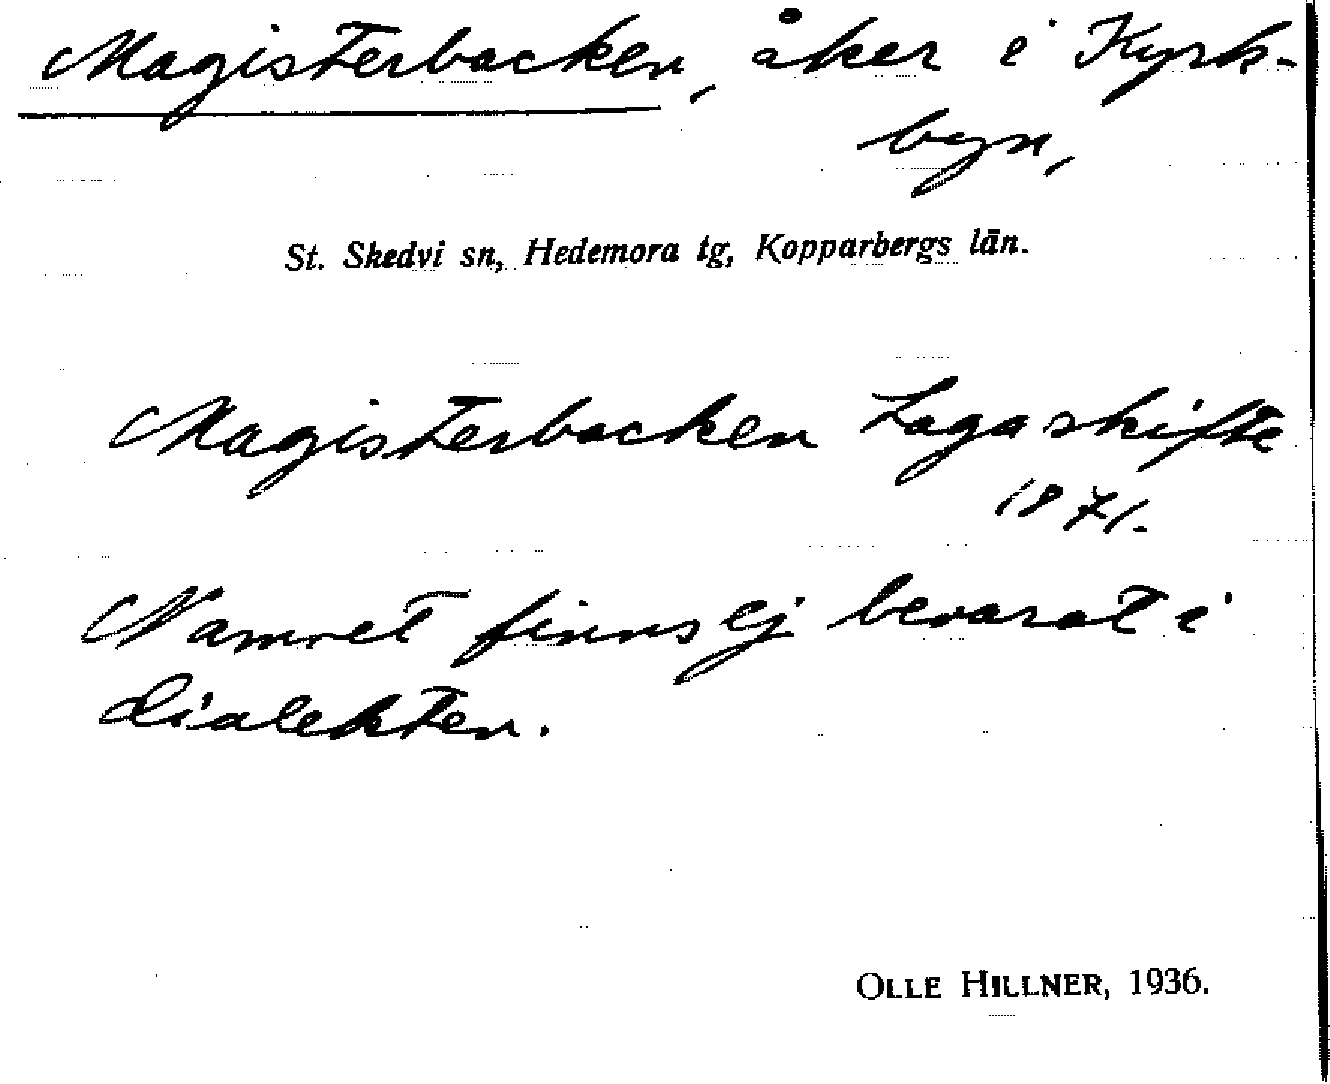 Magisterbacken, åker i Kyrk-
byn,
St. Skedvi sn, Hedemora tg, Kopparbergs län.
Magisterbacken Laga skifte
1871.
Namnet finns ej bevarat i
dialekten.
OLLE HILLNER, 1936.